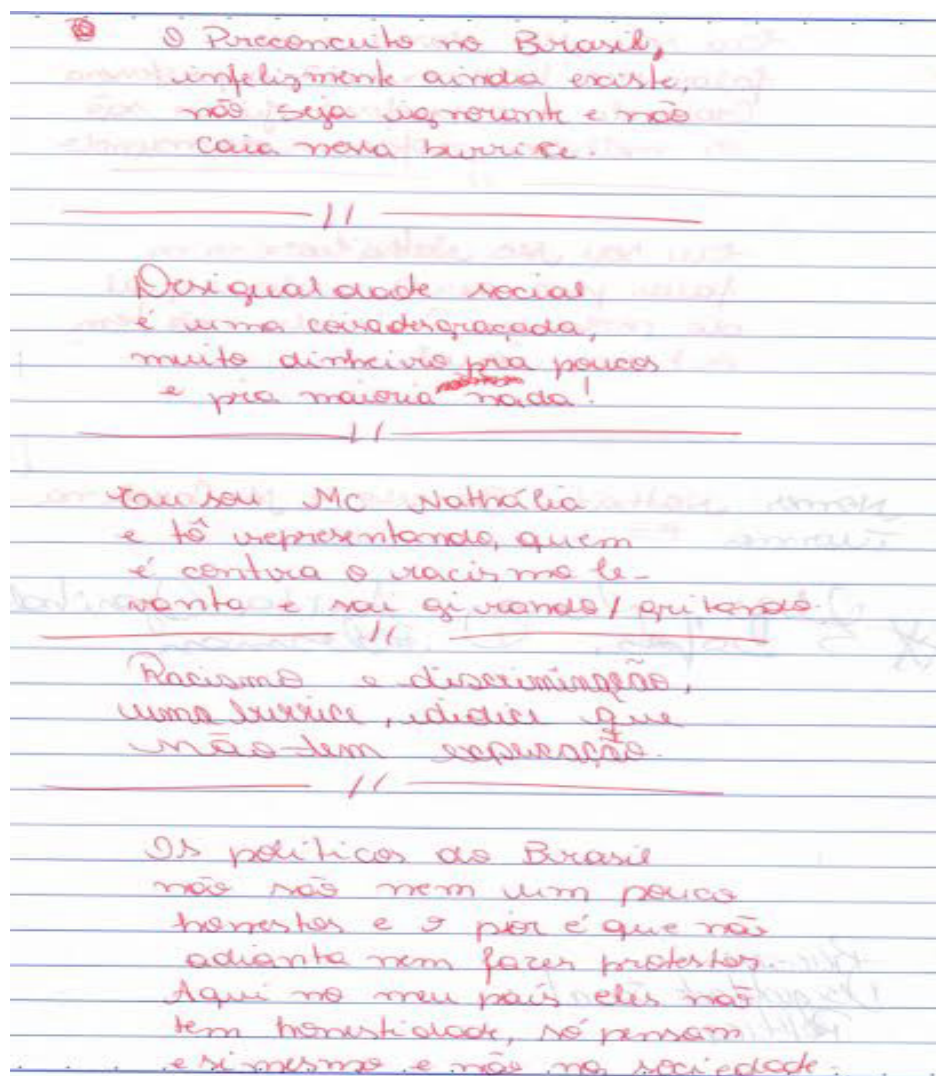 O Preconceito no Brasil,
infelizmente ainda existe,
não seja ignorante e não
caia nessa burrice.
Desigualdade social
é uma coisa desgraçada,
muito dinheiro pra poucos
e pra maioria nada!
Eu sou Mc Nathália
e tô representando, quem
é contra o racismo le-
vanta e sai girando/gritando.
Racismo e discriminação,
uma burrice, que
não tem
Os políticos do Brasil
não são nem um pouco
honestos e o pior é que não
adianta nem fazer protestos.
Aqui no meu país eles não
tem honestidade, só pensam
e si mesmo e não na sociedade.